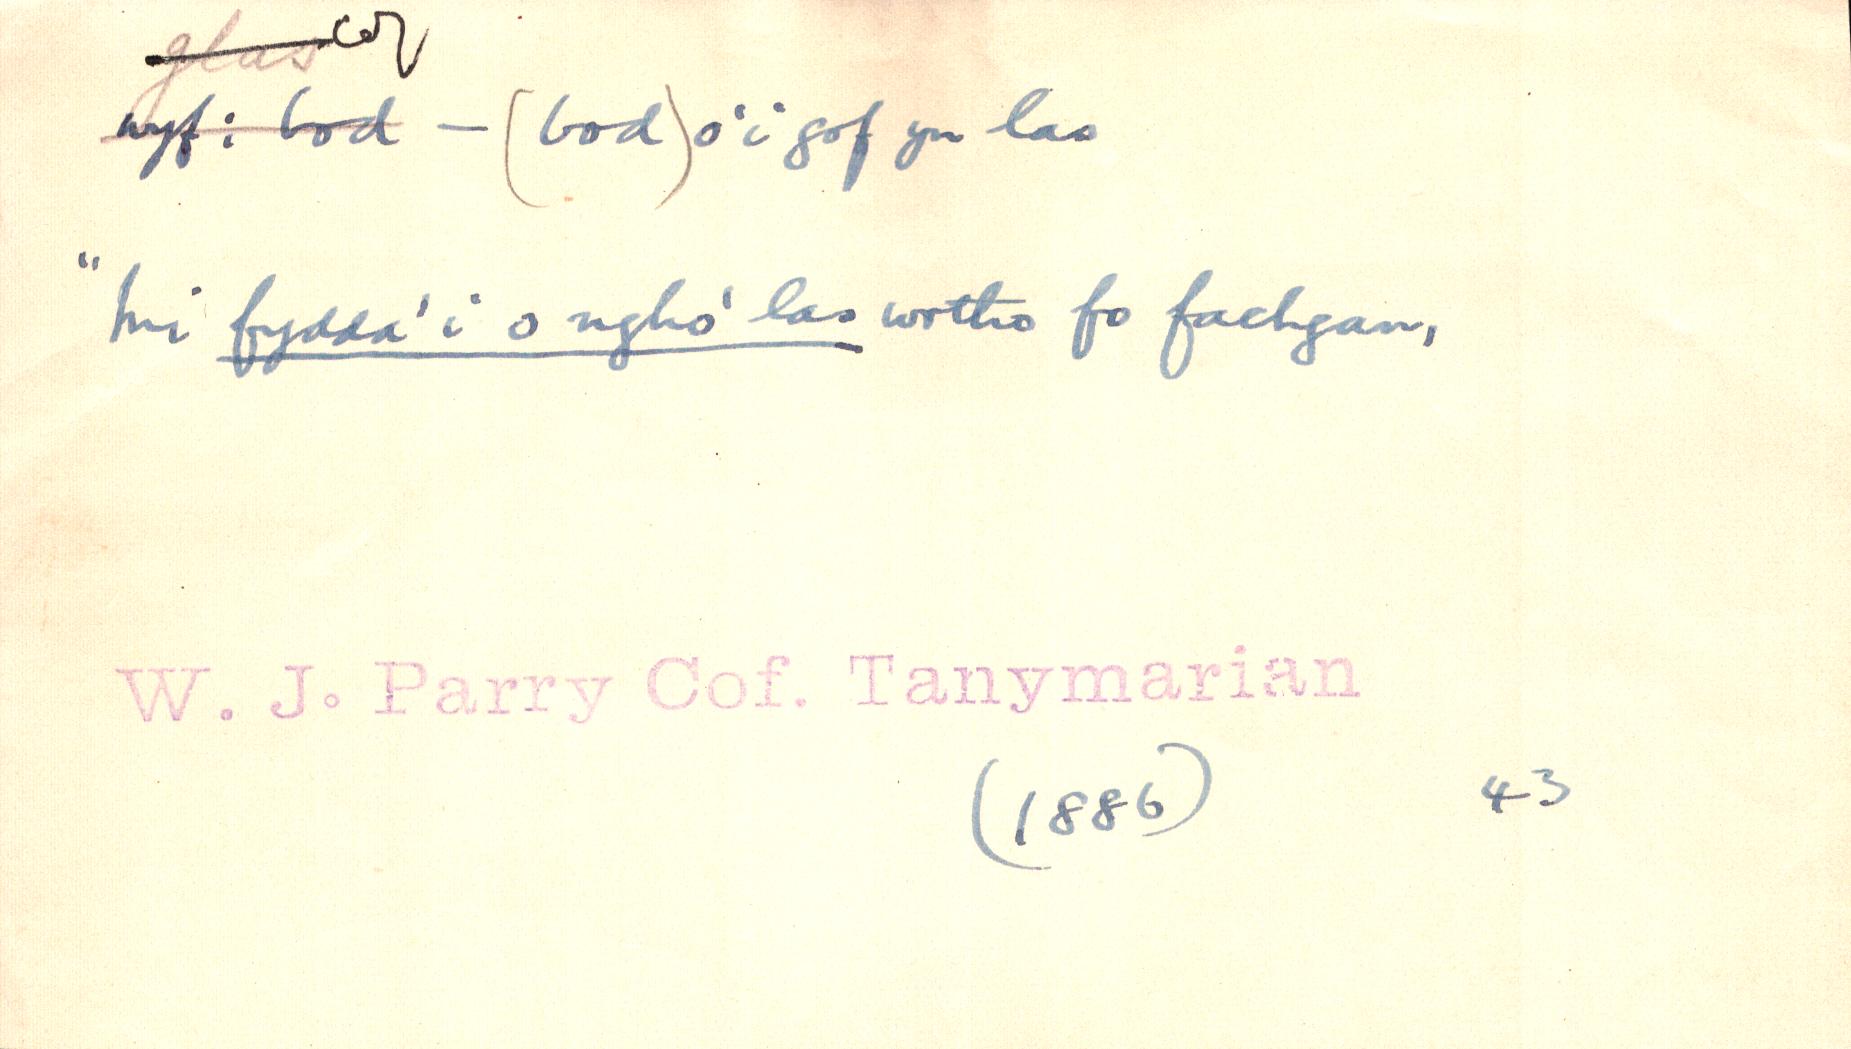 glas cof
wyf: bod – (bod) o'i gof yn las
"Mi fydda' i o ngho' las wrtho fo fachgan,
W. J. Parry Cof. Tanymarian
(1886) 43